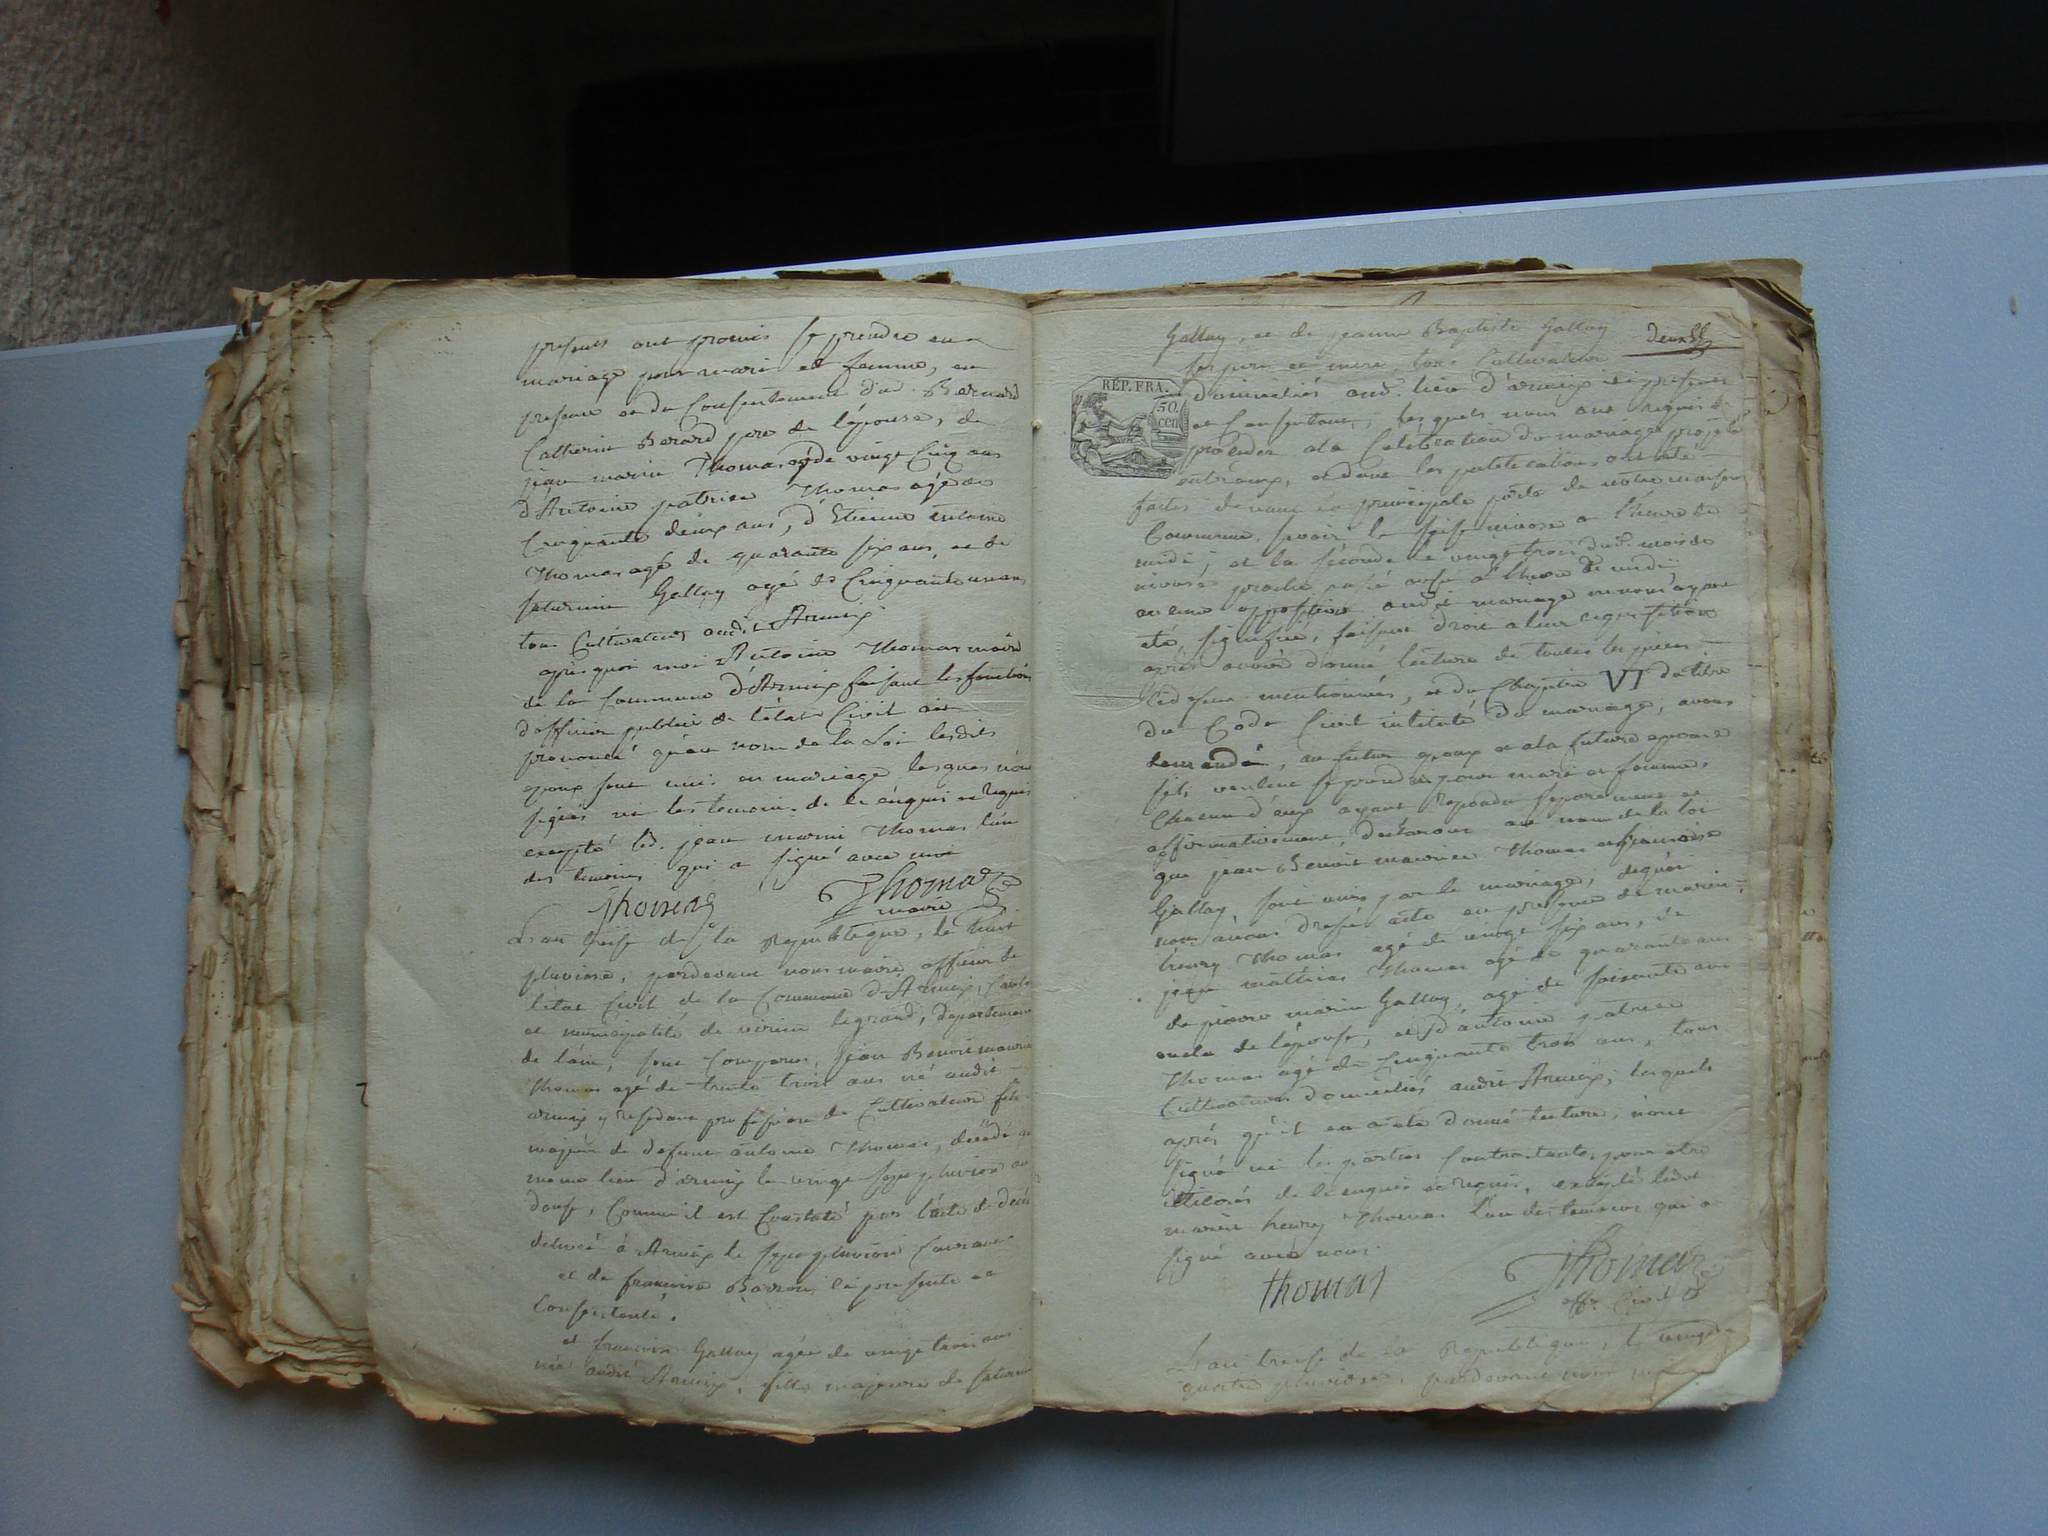 presents ont promis se prendre en
mariage pour mari et femme, en
presence et du Consentement dud. Bernard
Catherin Berard pere de l'épouse, de
jean marin Thomas agé de vingt Cinq ans
d'Antoine patrice Thomas agé de
Cinquante deux ans, d'Etienne antoine
Thomas agé de quarante six ans, et de
saturnin Gallay agé de Cinquante un ans
tous Cultivateurs audit Armix
après quoi moi Antoine Thomas maire
de la Commune d'Armix faisant les fonctions
d'officier public de l'état Civil ai
prononcé qu'au nom de la Loi lesdits
epoux sont unis en mariage lesquels n'ont
signés ni les temoins de ce enquis et requis
excepté led. jean marin Thomas l'un
des temoins qui a signé avec moi
Thomas Thomas
maire
L'an treise de la Republique, le huit
pluviose, pardevant nous maire officier de
l'état Civil de la Commune d'Armix, Canton
et municipalité de virieu legrand, departement
de l'ain, sont Comparus, jean Benoit maurice
Thomas agé de trente trois ans né audit
armix y residant profession de Cultivateur fils
majeur de defunt antoine Thomas, décédé au
meme lieu d'armix le vingt sept pluviose an
douse, Comme il est Constaté par l'acte de décès
delivré à Armix le sept pluviose Courant
et de francoise Baron ci presente et
Consentante.
et francoise Gallay agée de vingt trois ans
née audit Armix, fille majeure de saturnin
deux
Gallay, et de jeanne Baptiste Gallay
ses pere et mere, tous Cultivateurs
RÉP. FRA.
50 cen
domiciliés aud. lieu d'armix ici presents
et Consentans, lesquels nous ont requis de
proceder a la Celebration du mariage projeté
entr'eux, et dont les publications ont été
faites devant la principale porte de notre maison
Commune, savoir la seise nivose a l'heure de
midi; et la seconde le vingt trois dud. mois de
nivose proche passé aussi a l'heure de midi
aucune opposition audit mariage ne nous ayant
été signifiée, faisant droit a leur requisition
après avoir donné lecture de toutes les pieces
cidessus mentionnées, et du Chapitre VI du titre
du Code Civil intitulé du mariage, avons
demandé, au futur epoux et a la future epouse
s'ils veulent se prendre pour mari et femme,
Chacun d'eux ayant repondu separement et
affirmativement, declarons au nom de la loi
que jean Benoit maurice Thomas et francoise
Gallay sont unis par le mariage; dequoi
nous avons dressé acte en presence de marin
henry Thomas agé de vingt six ans, de
jean mathieu Thomas agé de quarante ans
de pierre marin Gallay, agé de soisante ans
oncle de l'épouse, et d'antoine patrice
Thomas agé de Cinquante trois ans, tous
Cultivateurs domiciliés audit Armix; lesquels
après qu'il en a été donné lecture, n'ont
signé ni les parties Contractantes pour etre
illiterés de ce enquis et requis, excepté ledit
marin henry Thomas l'un des temoins qui a
signé avec nous.
thomas Thomas
offr. Civil
L'an treise de la Republique, le vingt
quatre pluviose, pardevant nous